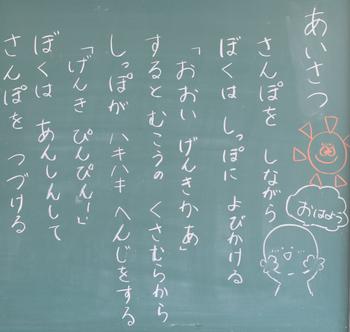 あいさつ
さんぽを しながら
ぼくは しっぽに よびかける
「おおい げんきかあ」
すると むこうの くさむらから
しっぽが ハキハキ へんじをする
「げんき ぴんぴん！」
ぼくは あんしんして
さんぽを つづける
おはよう